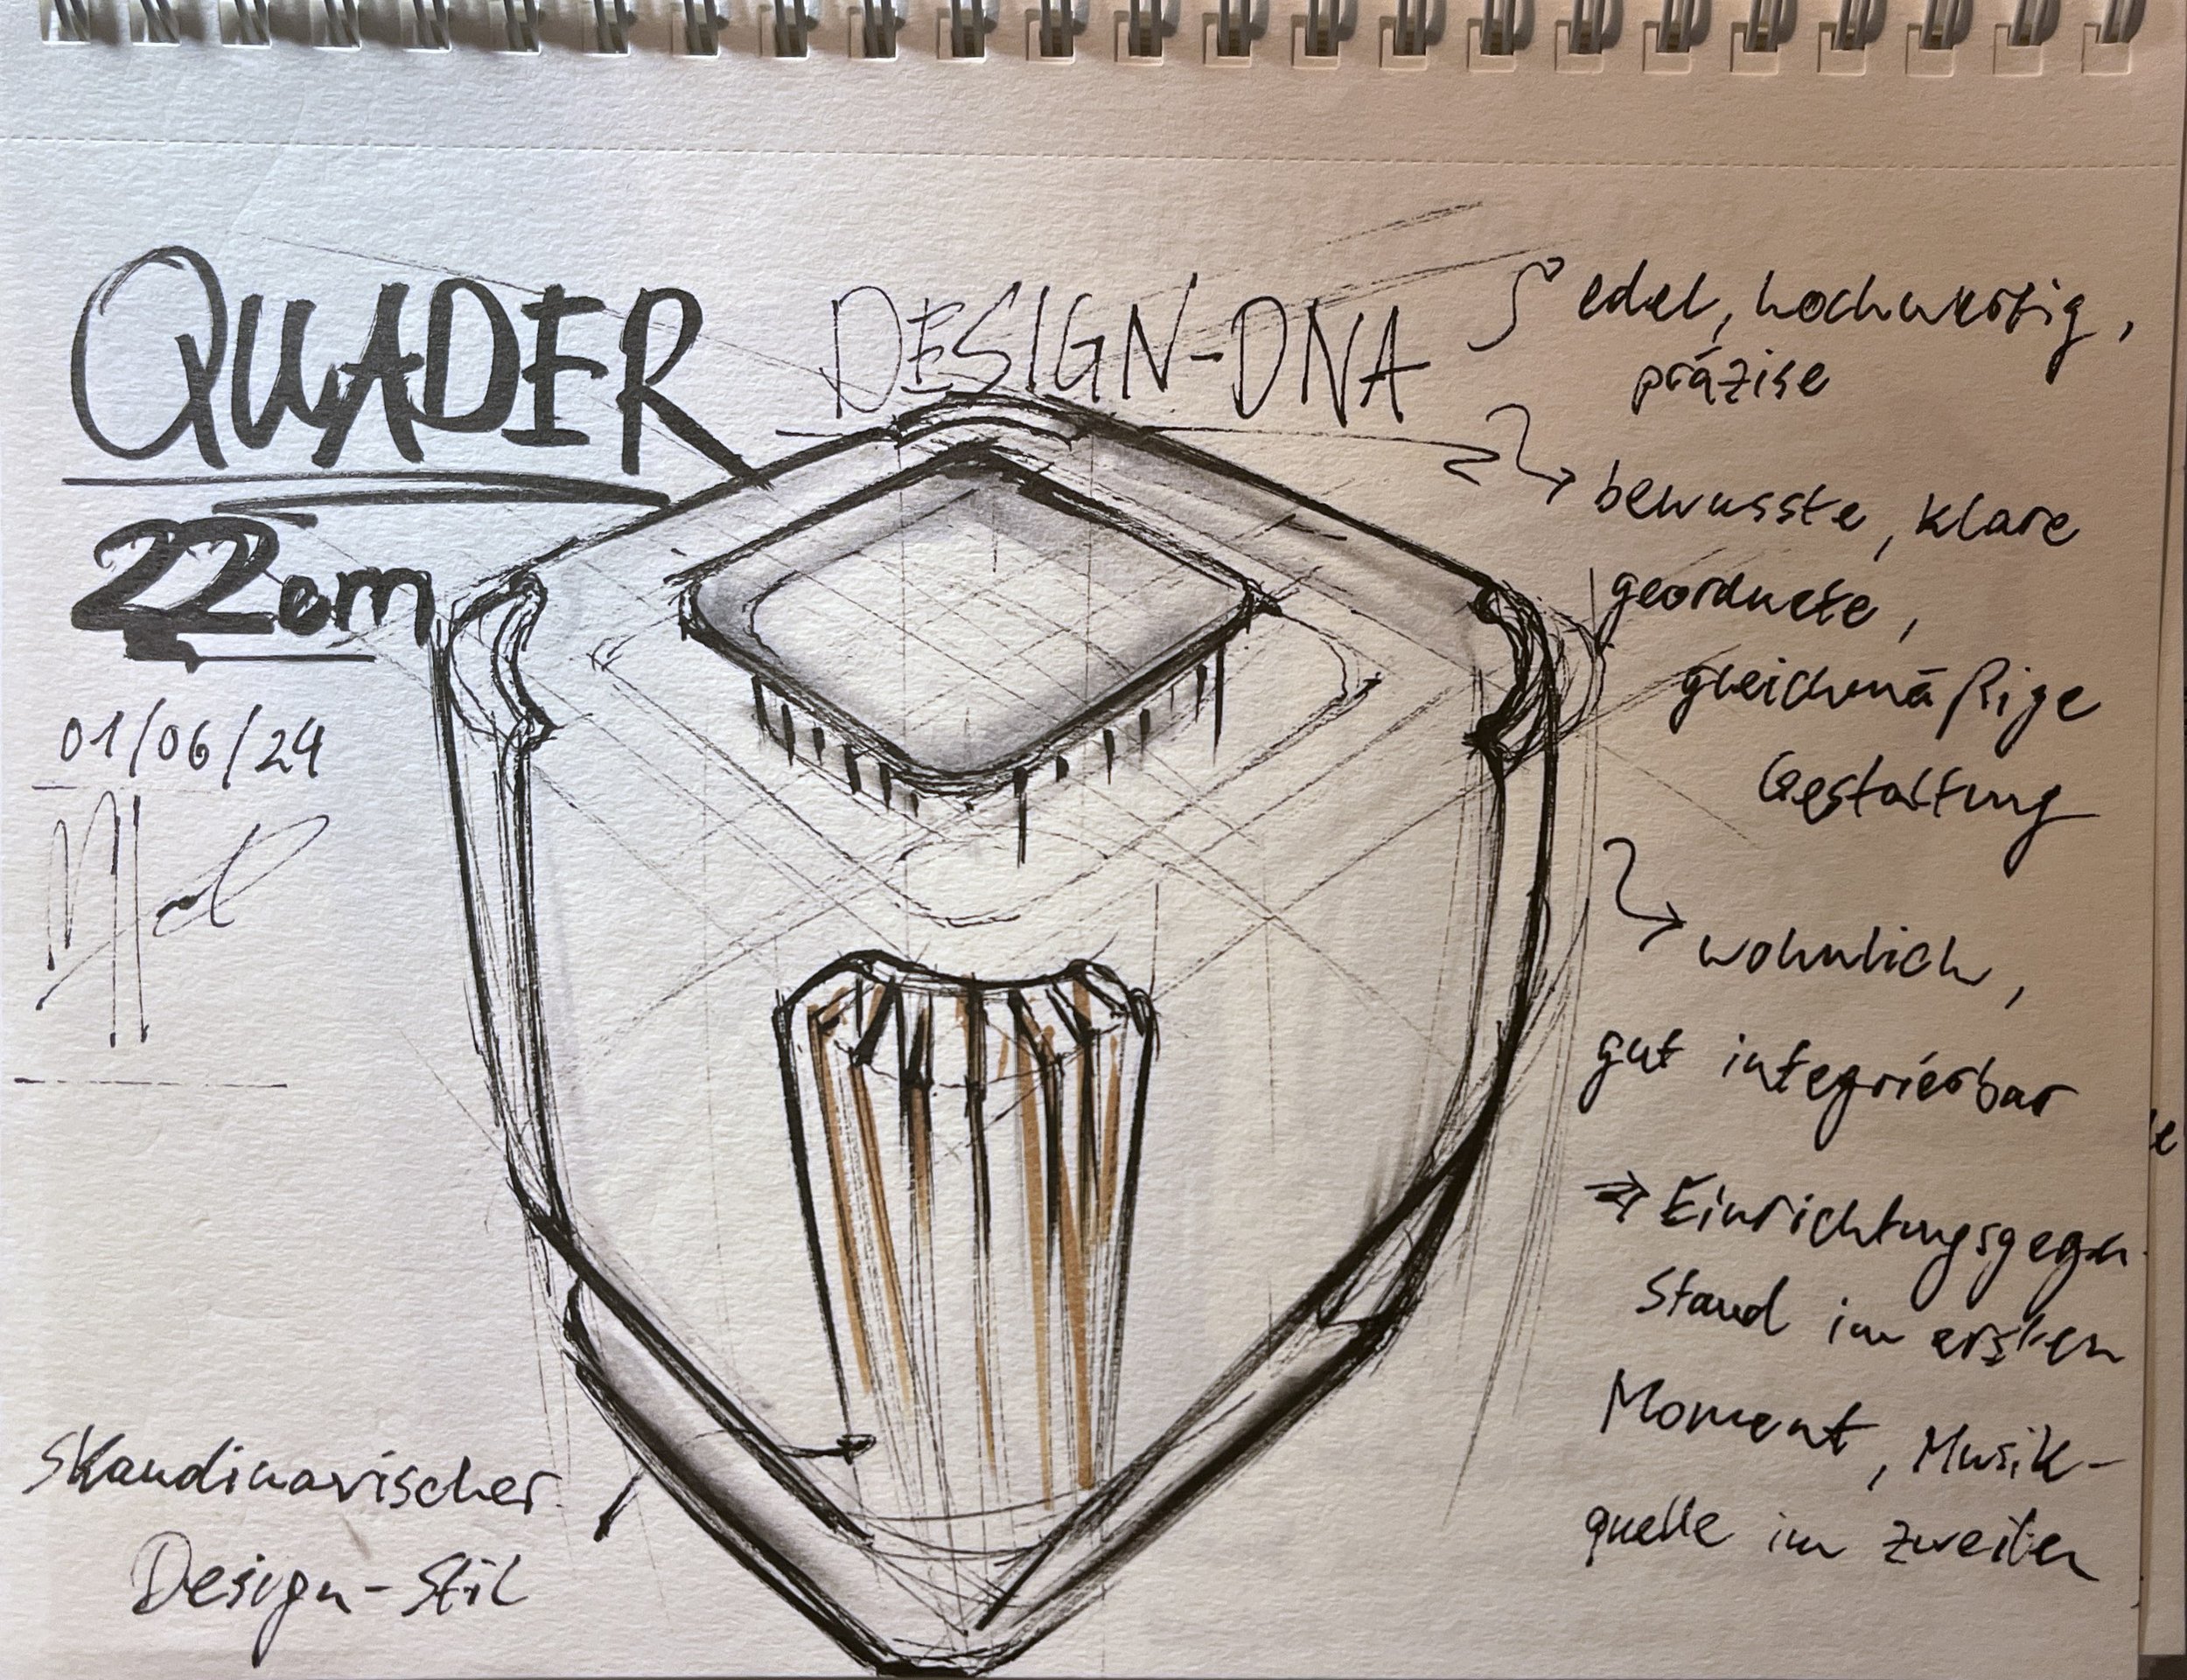 QUADER
22cm
01/06/24
DESIGN-DNA
edel, hochwertig,
präzise
bewusste, klare
geordnete,
gleichmäßige
Gestaltung
wohnlich,
gut integrierbar
Einrichtungsgegen
stand im ersten
Moment, Musik-
quelle im zweiten
Skandinavischer
Design-Stil